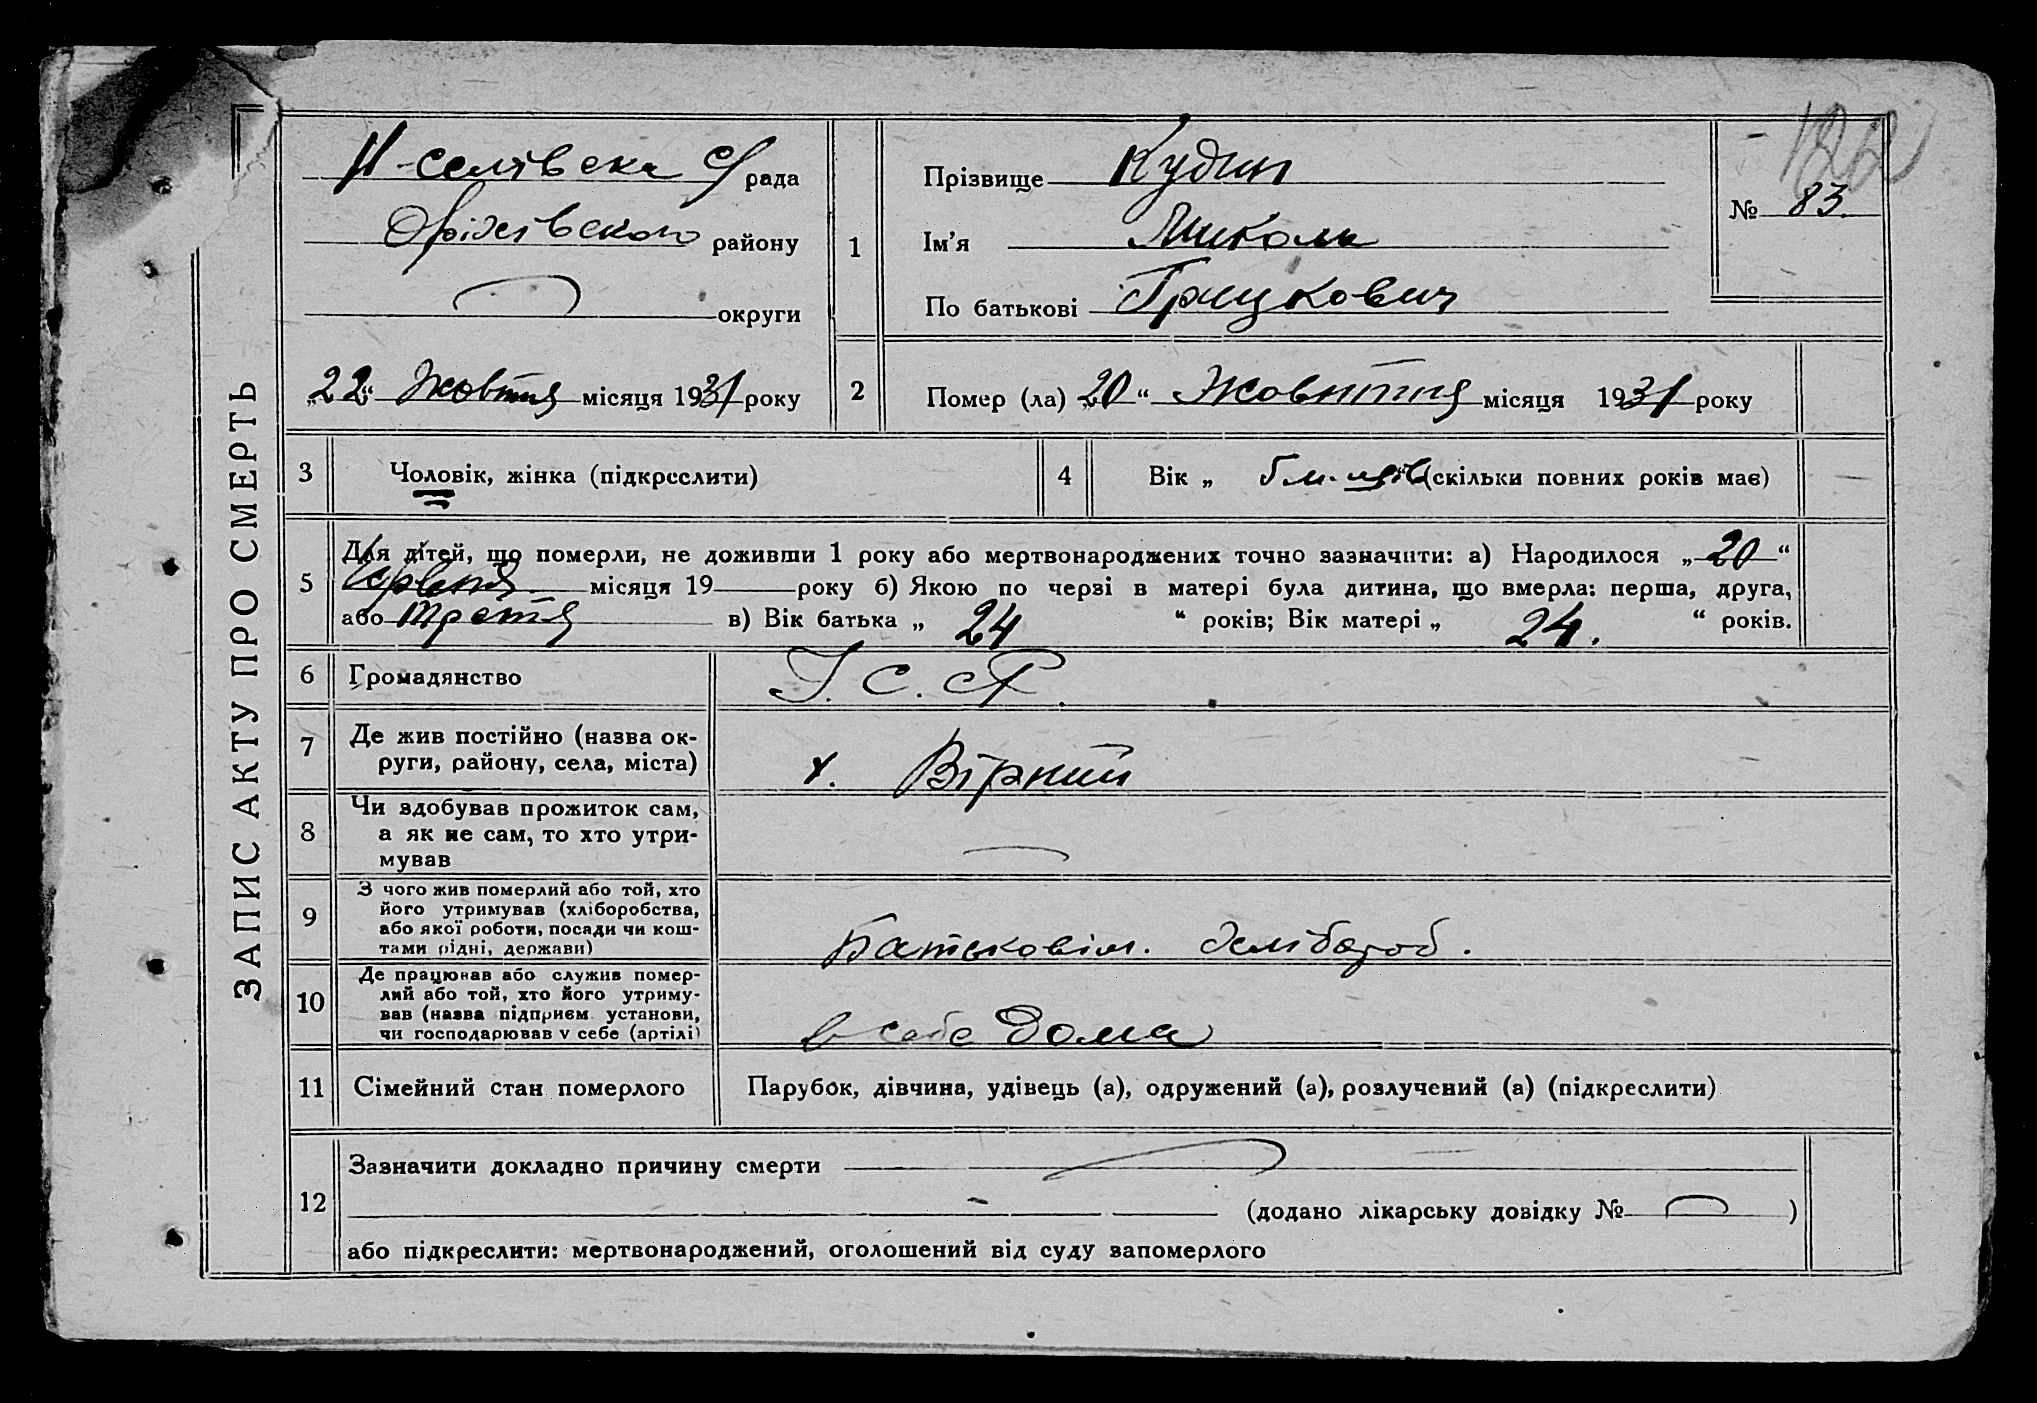 ЗАПИС АКТУ ПРО СМЕРТЬ
Н-селівска С/рада
району
округи
„22“ Жовтня місяця 1931 року
1
Прізвище Кудин
Ім'я Микола
По батькові Грицкович
№ 83.
2
Помер (ла) „20“ Жовтня місяця 1931 року
3
Чоловік, жінка (підкреслити)
4
Вік „ 5 м-ців“ (скільки повних років має)
5
Для дітей, що померли, не доживши 1 року або мертвонароджених точно зазначити: а) Народилося „20“
місяця 19 року б) Якою по черзі в матері була дитина, що вмерла: перша, друга,
або третя в) Вік батька „ 24 “ років; Вік матері „ 24. “ років.
6
Громадянство
У.С.С.Р.
7
Де жив постійно (назва ок-
руги, району, села, міста)
х. Вірний
8
Чи здобував прожиток сам,
а як не сам, то хто утри-
мував
9
З чого жив померлий або той, хто
його утримував (хліборобства,
або якої роботи, посади чи кош-
тами рідні, держави)
Батьковім. хлібороб.
10
Де працював або служив помер-
лий або той, хто його утриму-
вав (назва підприєм. установи,
чи господарював у себе (артілі)
в себе дома
11
Сімейний стан померлого
Парубок, дівчина, удівець (а), одружений (а), розлучений (а) (підкреслити)
12
Зазначити докладно причину смерти
(додано лікарську довідку № )
або підкреслити: мертвонароджений, оголошений від суду запомерлого